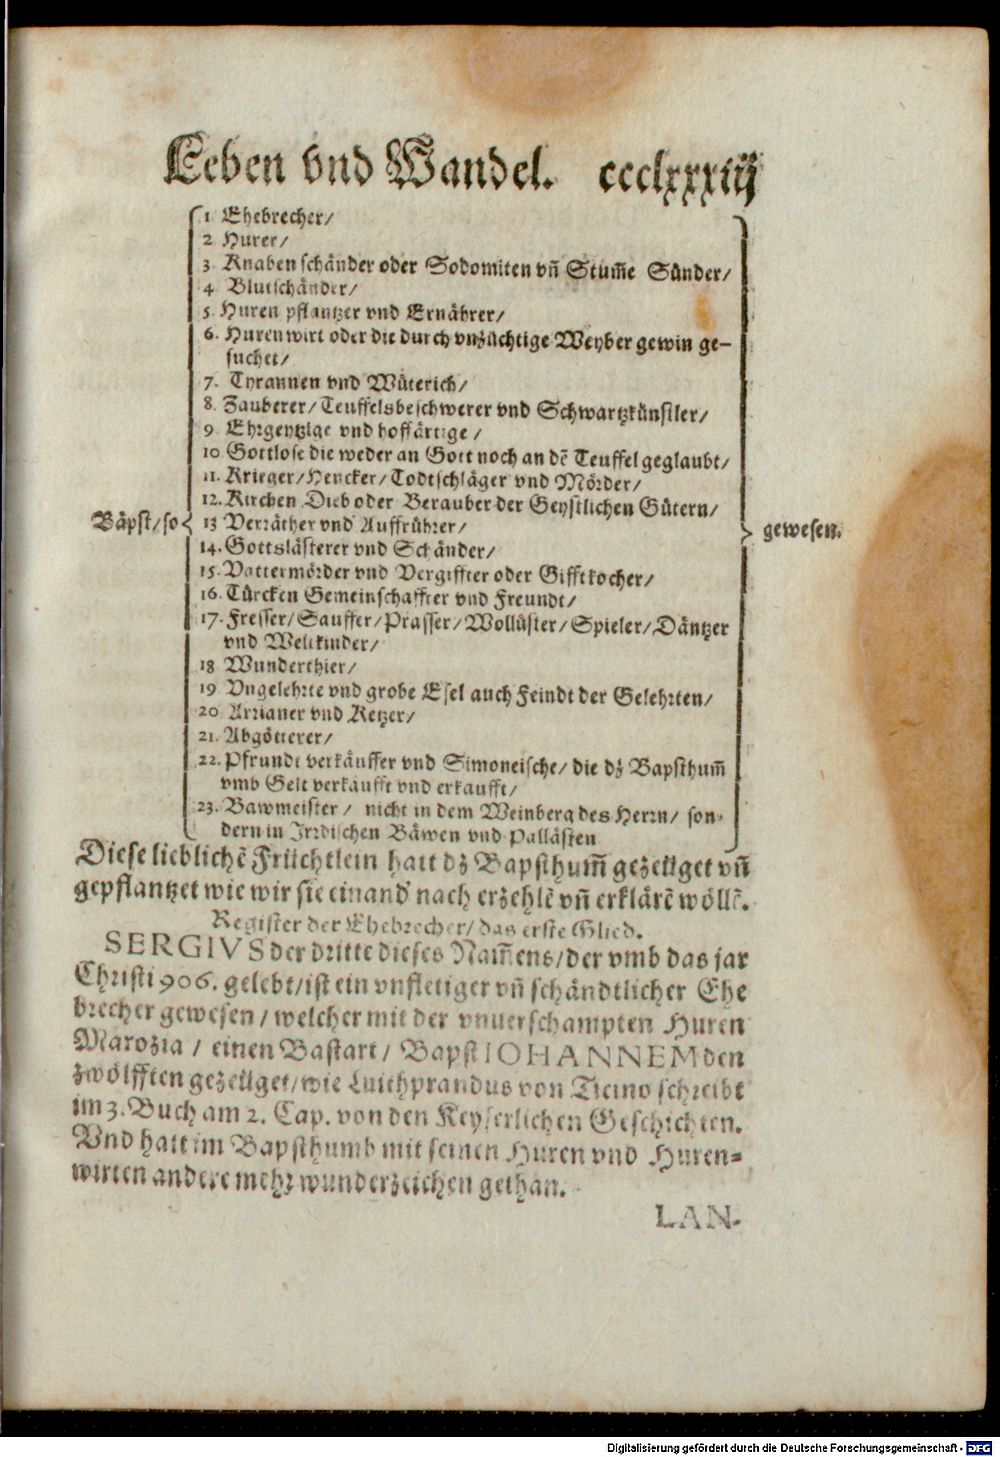 Leben vnd Wandel. ccclxxxiij
1 Ehebrecher/
2 Hurer/
3 Knabenschänder oder Sodomiten vñ Stum̃e Sünder/
4 Blutschänder/
5. Huren pflantzer vnd Ernährer/
6. Hurenwirt oder die durch vnzüchtige Weyber gewin ge-
suchet/
7. Tyrannen vnd Wüterich/
8. Zauberer/ Teuffelsbeschwerer vnd Schwartzkünstler/
9 Ehrgeytzige vnd hoffärtige/
10 Gottlose die weder an Gott noch an dẽ Teuffel geglaubt/
11. Krieger/ Hencker/ Todtschläger vnd Mörder/
12. Kirchen Dieb oder Berauber der Geystlichen Gütern/
Bäpst/ so 13 Verräther vnd Auffrührer/ gewesen.
14. Gottslästerer vnd Schänder/
15. Vattermörder vnd Vergiffter oder Gifftkocher/
16. Türcken Gemeinschaffter vnd Freundt/
17. Fresser/ Sauffer/ Prasser/ Wollüster/ Spieler/ Däntzer
vnd Weltkinder/
18 Wunderthier/
19 Vngelehrte vnd grobe Esel auch Feindt der Gelehrten/
20 Arrianer vnd Ketzer/
21. Abgötterer/
22. Pfrundt verkäuffer vnd Simoneische/ die dz Bapsthum̃
vmb Gelt verkaufft vnd erkaufft/
23. Bawmeister/ nicht in dem Weinberg des Herrn/ son-
dern in Irrdischen Bäwen vnd Pallästen
Diese lieblichẽ Früchtlein hatt dz Bapsthum̃ gezeüget vñ
gepflantzet wie wir sie einand' nach erzehlẽ vñ erklärẽ wöllẽ.
Register der Ehebrecher/ das erste Glied.
SERGIVS der dritte dieses Nam̃ens/ der vmb das jar
Christi 906. gelebt/ ist ein vnfletiger vñ schändtlicher Ehe
brecher gewesen/ welcher mit der vnuerschampten Huren
Marozia/ einen Bastart/ Bapst IOHANNEM den
zwölfften gezeüget/ wie Luithprandus von Ticino schreibt
im 3. Buch am 2. Cap. von den Keyserlichen Geschichten.
Vnd hatt im Bapsthumb mit seinen Huren vnd Huren-
wirten andere mehr wunderzeichen gethan.
LAN-
Digitalisierung gefördert durch die Deutsche Forschungsgemeinschaft - DFG